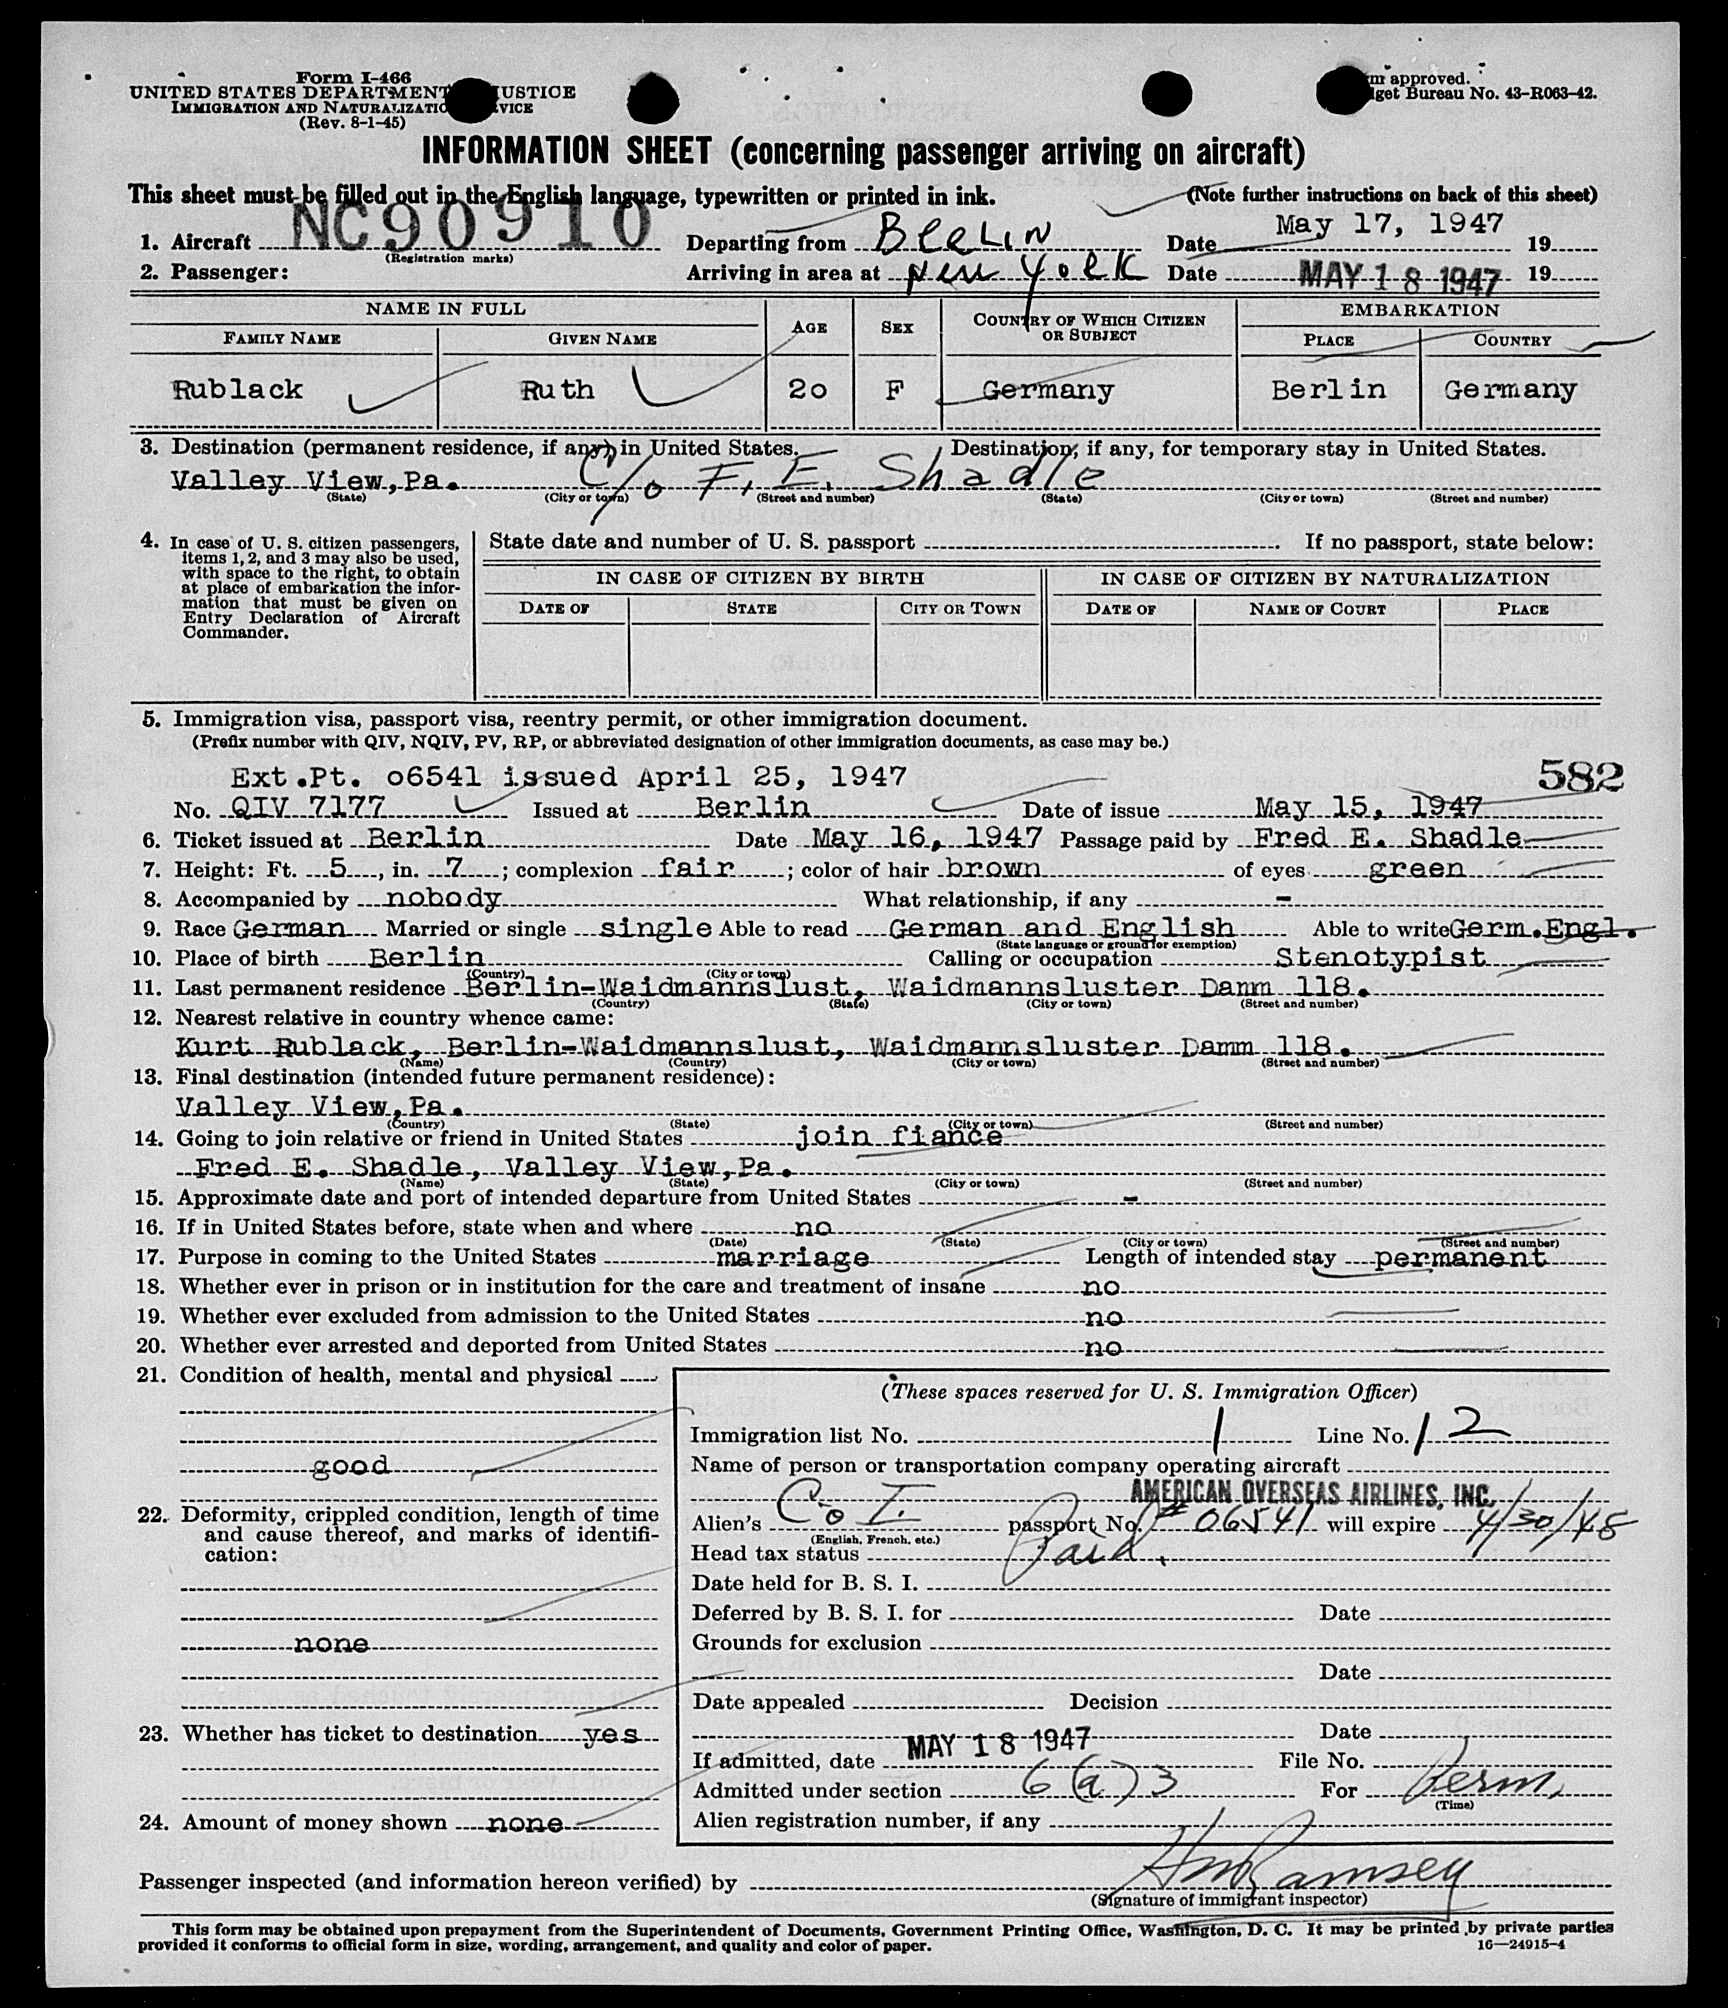 Form I-466
UNITED STATES DEPARTMENT JUSTICE
IMMIGRATION AND NATURALIZATIO VICE
(Rev. 8-1-45)
m approved.
get Bureau No. 43-R063-42.
INFORMATION SHEET (concerning passenger arriving on aircraft)
This sheet must be filled out in the English language, typewritten or printed in ink. (Note further instructions on back of this sheet)
1. Aircraft NC90910 Departing from Berlin Date May 17, 1947 19
(Registration marks)
2. Passenger: Arriving in area at New York Date MAY 18 1947 19
NAME IN FULL AGE SEX COUNTRY OF WHICH CITIZEN OR SUBJECT EMBARKATION
FAMILY NAME GIVEN NAME PLACE COUNTRY
Rublack Ruth 20 F Germany Berlin Germany
3. Destination (permanent residence, if any) in United States. Destination, if any, for temporary stay in United States.
Valley View, Pa. C/o F. E. Shadle
(State) (City or town) (Street and number) (State) (City or town) (Street and number)
4. In case of U. S. citizen passengers, items 1, 2, and 3 may also be used, with space to the right, to obtain at place of embarkation the information that must be given on Entry Declaration of Aircraft Commander.
State date and number of U. S. passport If no passport, state below:
IN CASE OF CITIZEN BY BIRTH IN CASE OF CITIZEN BY NATURALIZATION
DATE OF STATE CITY OR TOWN DATE OF NAME OF COURT PLACE
5. Immigration visa, passport visa, reentry permit, or other immigration document.
(Prefix number with QIV, NQIV, PV, RP, or abbreviated designation of other immigration documents, as case may be.)
Ext.Pt. 06541 issued April 25, 1947 582
No. QIV 7177 Issued at Berlin Date of issue May 15, 1947
6. Ticket issued at Berlin Date May 16, 1947 Passage paid by Fred E. Shadle
7. Height: Ft. 5, in. 7; complexion fair; color of hair brown of eyes green
8. Accompanied by nobody What relationship, if any -
9. Race German Married or single single Able to read German and English Able to write Germ.Engl.
(State language or ground for exemption)
10. Place of birth Berlin Calling or occupation Stenotypist
(Country) (City or town)
11. Last permanent residence Berlin-Waidmannslust, Waidmannsluster Damm 118.
(Country) (State) (City or town) (Street and number)
12. Nearest relative in country whence came:
Kurt Rublack, Berlin-Waidmannslust, Waidmannsluster Damm 118.
(Name) (Country) (City or town) (Street and number)
13. Final destination (intended future permanent residence):
Valley View, Pa.
(Country) (State) (City or town) (Street and number)
14. Going to join relative or friend in United States join fiance
Fred E. Shadle, Valley View, Pa.
(Name) (State) (City or town) (Street and number)
15. Approximate date and port of intended departure from United States -
16. If in United States before, state when and where no
(Date) (State) (City or town) (Street and number)
17. Purpose in coming to the United States marriage Length of intended stay permanent
18. Whether ever in prison or in institution for the care and treatment of insane no
19. Whether ever excluded from admission to the United States no
20. Whether ever arrested and deported from United States no
21. Condition of health, mental and physical
good
22. Deformity, crippled condition, length of time and cause thereof, and marks of identification:
none
23. Whether has ticket to destination yes
24. Amount of money shown none
(These spaces reserved for U. S. Immigration Officer)
Immigration list No. 1 Line No. 12
Name of person or transportation company operating aircraft
AMERICAN OVERSEAS AIRLINES, INC.
Alien's C of I. passport No. # 06541 will expire 4/30/48
(English, French, etc.)
Head tax status Paid.
Date held for B. S. I.
Deferred by B. S. I. for Date
Grounds for exclusion
Date
Date appealed Decision
Date
If admitted, date MAY 18 1947 File No.
Admitted under section 6(a)3 For Perm.
(Time)
Alien registration number, if any
Passenger inspected (and information hereon verified) by Ramsey
(Signature of immigrant inspector)
This form may be obtained upon prepayment from the Superintendent of Documents, Government Printing Office, Washington, D. C. It may be printed by private parties
provided it conforms to official form in size, wording, arrangement, and quality and color of paper. 16—24915-4